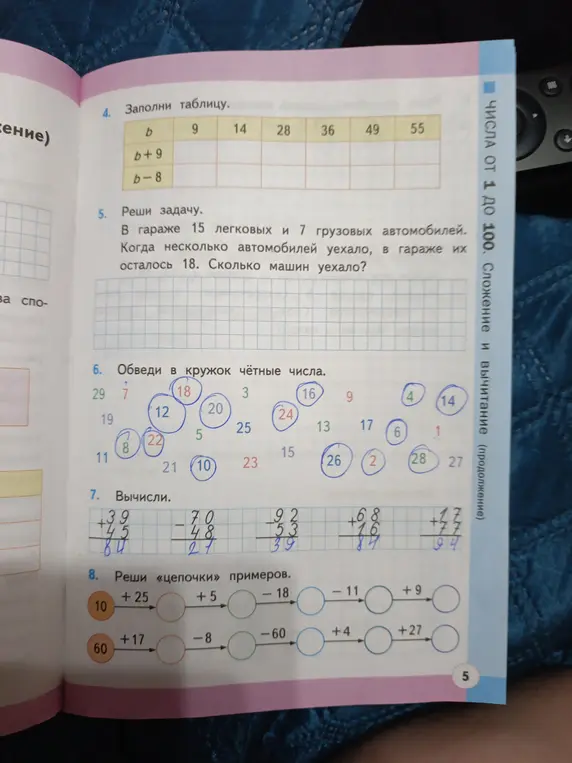 жение)
ва спо-
4. Заполни таблицу.
b 9 14 28 36 49 55
b + 9
b − 8
5. Реши задачу.
В гараже 15 легковых и 7 грузовых автомобилей.
Когда несколько автомобилей уехало, в гараже их
осталось 18. Сколько машин уехало?
6. Обведи в кружок чётные числа.
29 7 18 3 16 9 4 14
19 12 20 24 13 17 6 1
11 8 22 5 25 15 26 2 28 27
21 10 23
7. Вычисли.
+39 −70 −92 +68 +17
45 48 53 16 77
84 21 39 84 94
8. Реши «цепочки» примеров.
10 +25 +5 −18 −11 +9
60 +17 −8 −60 +4 +27
5
ЧИСЛА ОТ 1 ДО 100. Сложение и вычитание (продолжение)